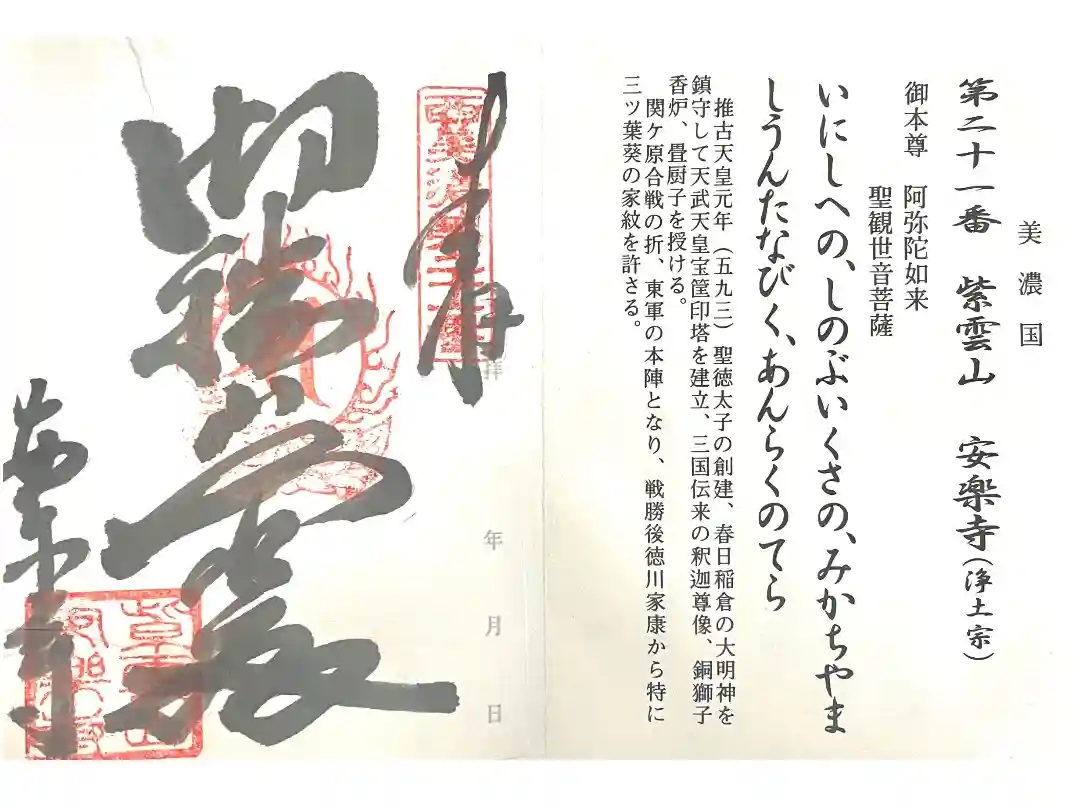 美濃国
第二十一番 紫雲山 安楽寺(浄土宗)
御本尊 阿弥陀如来
聖観世音菩薩
いにしへの、しのぶいくさの、みかちやま
しうんたなびく、あんらくのてら
推古天皇元年(五九三)聖徳太子の創建、春日稲倉の大明神を
鎮守して天武天皇宝筺印塔を建立、三国伝来の釈迦尊像、銅獅子
香炉、畳厨子を授ける。
関ケ原合戦の折、東軍の本陣となり、戦勝後徳川家康から特に
三ツ葉葵の家紋を許さる。
奉拝
年月日
安楽寺